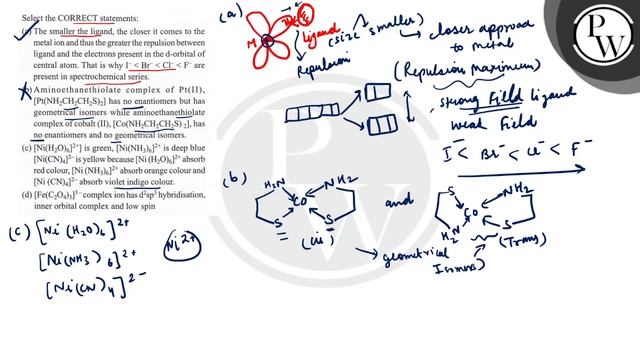 Select the CORRECT statements:
(a) The smaller the ligand, the closer it comes to the
metal ion and thus the greater the repulsion between
ligand and the electrons present in the d-orbital of
central atom. That is why I⁻ < Br⁻ < Cl⁻ < F⁻ are
present in spectrochemical series.
(b) Aminoethanethiolate complex of Pt(II),
[Pt(NH2CH2CH2S)2] has no enantiomers but has
geometrical isomers while aminoethanethiolate
complex of cobalt (II), [Co(NH2CH2CH2S)2], has
no enantiomers and no geometrical isomers.
(c) [Ni(H2O)6]²⁺] is green, [Ni(NH3)6]²⁺] is deep blue
[Ni(CN)4]²⁻] is yellow because [Ni(H2O)6]²⁺ absorb
red colour, [Ni (NH3)6]²⁺ absorb orange colour and
[Ni (CN)4]²⁻ absorb violet indigo colour.
(d) [Fe(C2O4)3]³⁻ complex ion has d²sp³ hybridisation,
inner orbital complex and low spin
(c) [Ni(H2O)6]²⁺
[Ni(NH3)6]²⁺
[Ni(CN)4]²⁻
Ni²⁺
(a)
M
Ligand
(size smaller)
closer approach
to metal
Repulsion
(Repulsion maximum)
strong Field ligand
weak Field
I⁻ < Br⁻ < Cl⁻ < F⁻
(b)
H2N NH2
Co
S S
(cis)
and
S NH2
Co
H2N S
(Trans)
geometrical
Isomers
PW